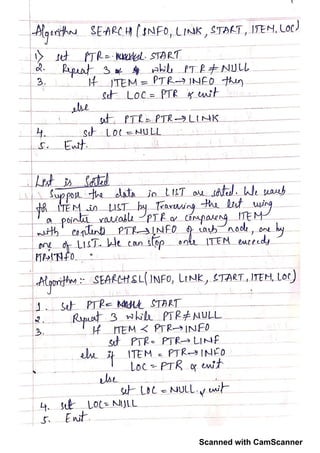 Algorithm SEARCH (INFO, LINK, START, ITEM, LOC)
1) set PTR = START
2. Repeat 3 while PTR ≠ NULL
3. If ITEM = PTR→INFO then
set LOC = PTR & exit
else
set PTR = PTR→LINK
4. set LOC = NULL
5. Exit.
List is Sorted
Suppose the data in LIST are sorted. We search
ITEM in LIST by Traversing the list using
a pointer variable PTR & comparing ITEM
with contents PTR→INFO of each node, one by
one of LIST. We can stop once ITEM exceeds
PTR→INFO.
Algorithm:- SEARCHSL (INFO, LINK, START, ITEM, LOC)
1. Set PTR = START
2. Repeat 3 while PTR ≠ NULL
3. If ITEM < PTR→INFO
set PTR = PTR→LINK
else if ITEM = PTR→INFO
LOC = PTR & exit
else
set LOC = NULL & exit
4. set LOC = NULL
5. Exit.
Scanned with CamScanner